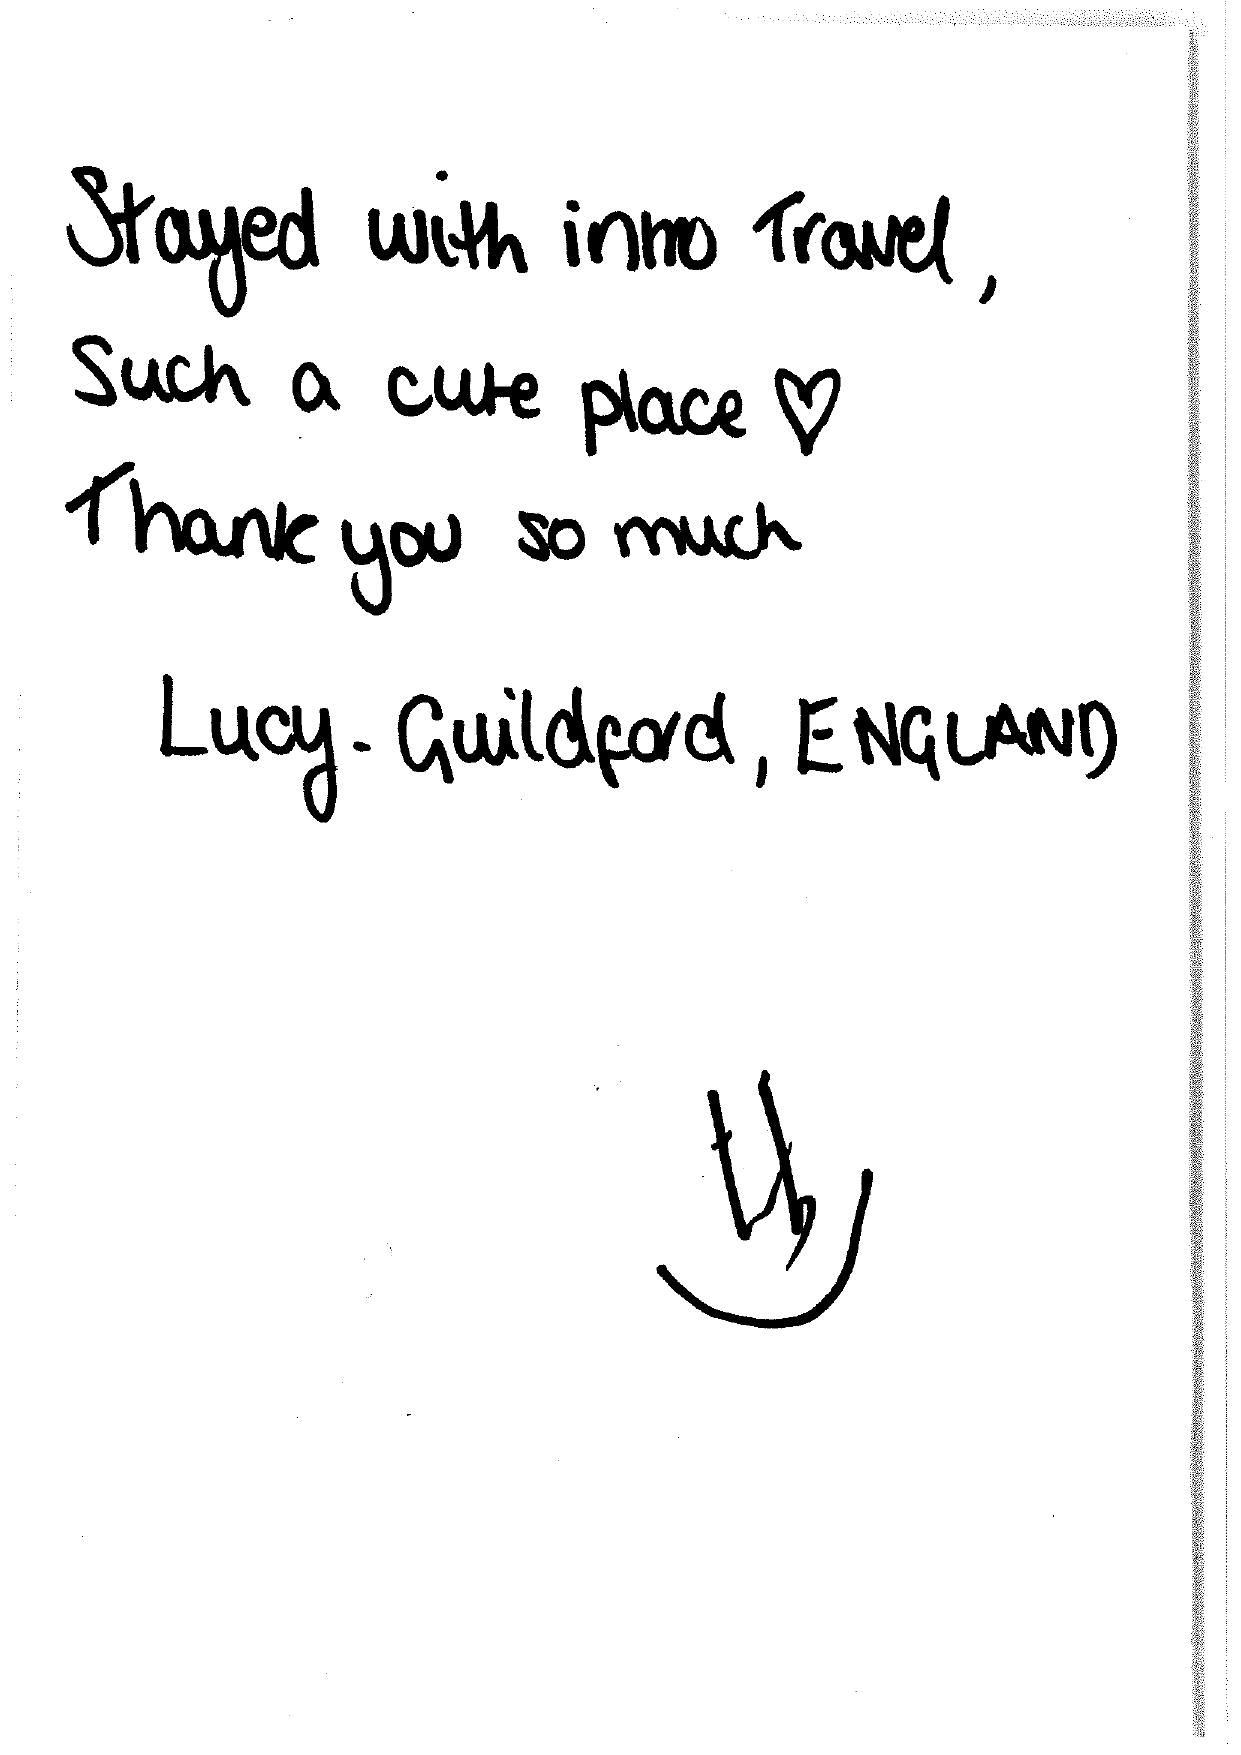 Stayed with inno Travel,
Such a cute place ♡
Thank you so much
Lucy - Guildford, ENGLAND